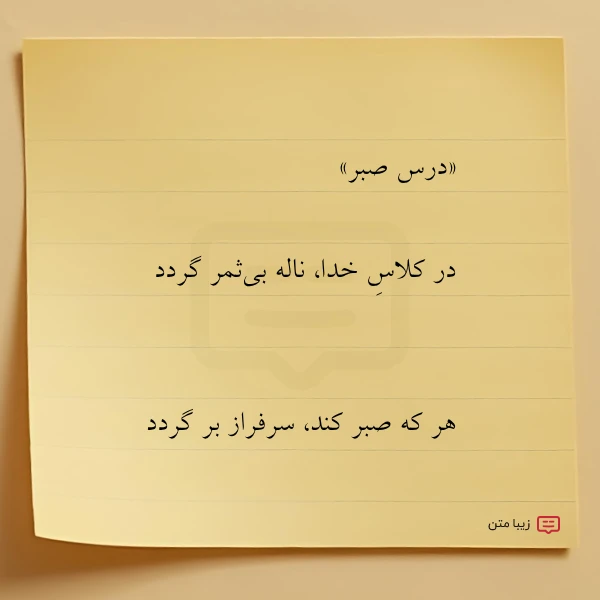 «درس صبر»
در کلاسِ خدا، ناله بی‌ثمر گردد
هر که صبر کند، سرفراز بر گردد
زیبا متن